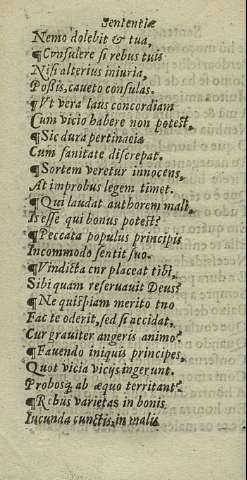 Sententiæ
Nemo dolebit & tua,
¶Consulere si rebus tuis
Nisi alterius iniuria,
Possis, caueto consulas.
¶Vt vera laus concordiam
Cum vicio habere non potest,
¶Sic dura pertinacia
Cum sanitate discrepat.
¶Sortem veretur innocens,
At improbus legem timet.
¶Qui laudat authorem mali,
Is esse qui bonus potest?
¶Peccata populus principis
Incommodo sentit suo.
¶Vindicta cur placeat tibi,
Sibi quam reseruauit Deus?
¶Ne quispiam merito tuo
Fac te oderit, sed si accidat,
Cur grauiter angeris animo?
¶Fauendo iniquis principes,
Quot vicia vicijs ingerunt.
Probosq; ab æquo territant?
¶Rebus varietas in bonis
Iucunda cunctis, in malis